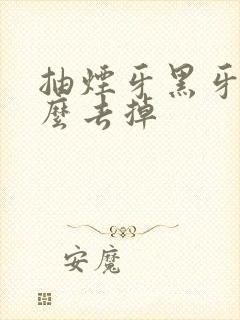 抽煙牙黑牙
麼去掉
安魔